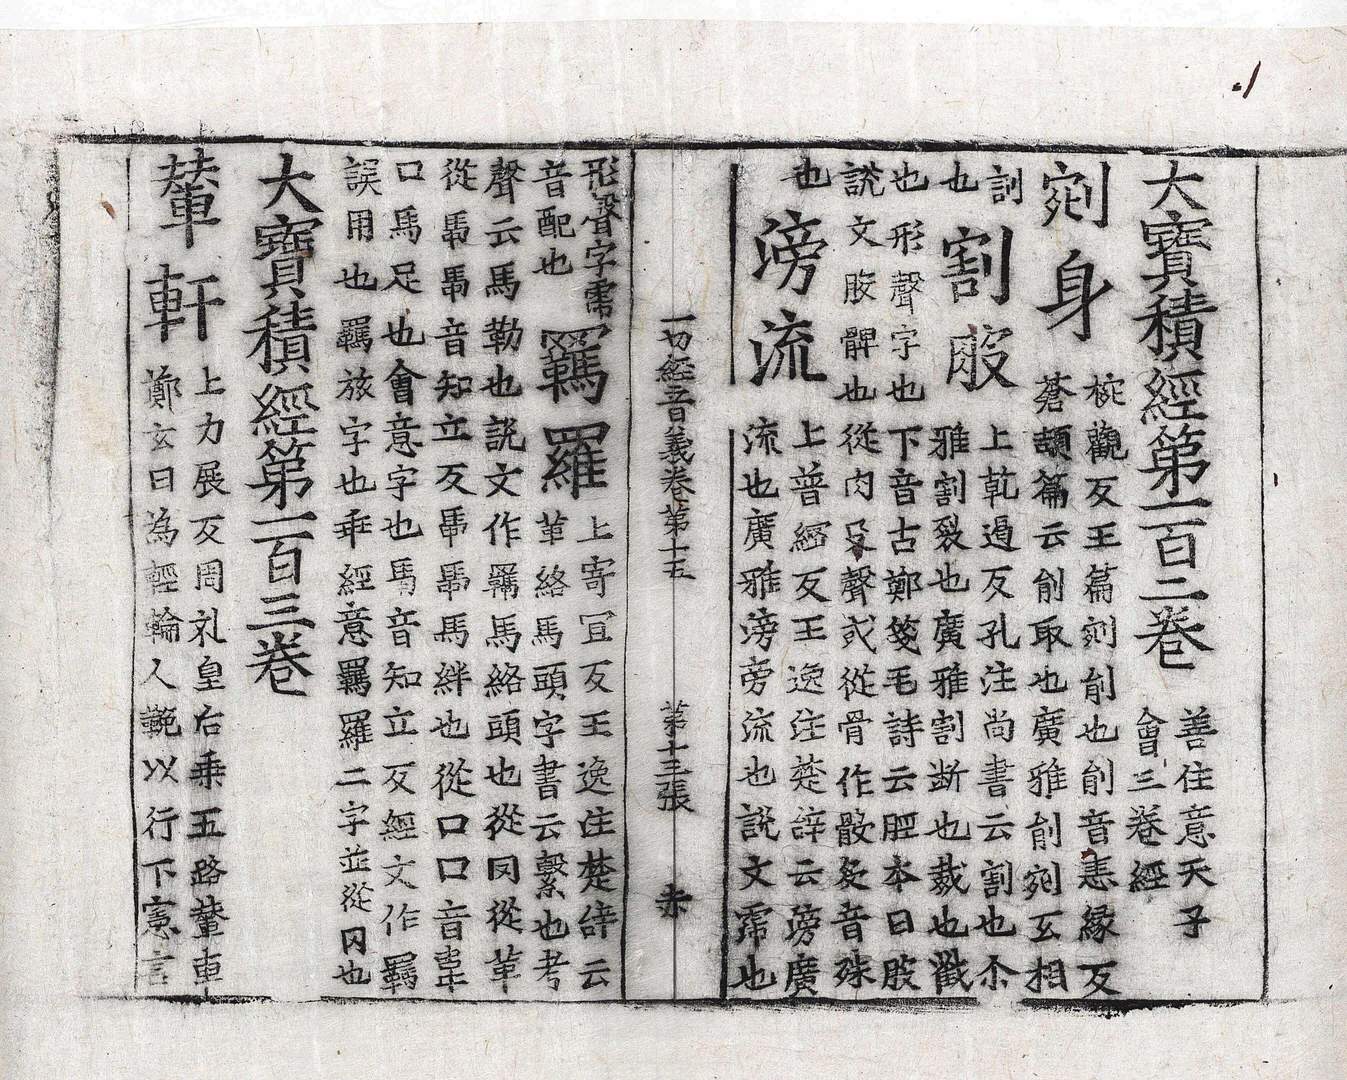 大寶積經第一百二卷
善住意天子
會三卷經
剜身
椀觀反王篇剜削也削音恚緣反
蒼頡篇云削取也廣雅削剜互相
訓
也
割股
上乾遏反孔注尚書云割也尒
雅割裂也廣雅割断也裁也截
也形聲字也下音古鄭箋毛詩云脛本曰股
說文股髀也從肉殳聲或從骨作骰殳音殊
也
滂流
上普經反王逸注楚辞云滂廣
流也廣雅滂旁流也說文霈也
一切經音義卷第十五 第十三張
形聲字霈
音配也
羈羅
上寄冝反王逸注楚辞云
革絡馬頭字書云繫也考
聲云馬勒也說文作羈馬絡頭也從罔從革
從馽馽音知立反馽馽馬絆也從口口音韋
口馬足也會意字也馬音知立反經文作羇
誤用也羈旅字也乖經意羈羅二字並從网也
大寶積經第一百三卷
輦軒
上力展反周礼皇后乘五路輦車
鄭玄曰為輕輪人輓以行下憲言